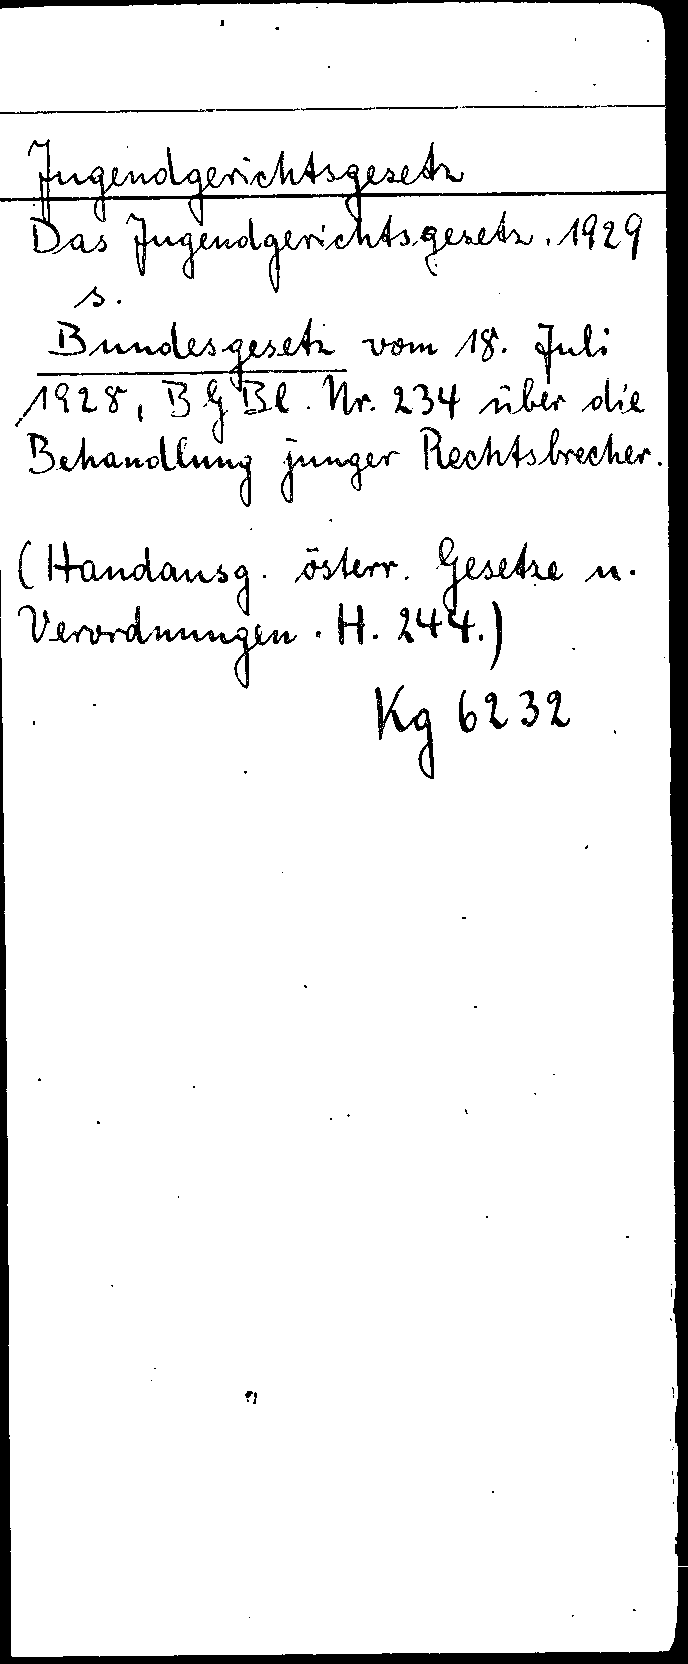 Jugendgerichtsgesetz
Das Jugendgerichtsgesetz. 1929
s.
Bundesgesetz vom 18. Juli
1928, BGBl. Nr. 234 über die
Behandlung junger Rechtsbrecher.
(Handausg. österr. Gesetze u.
Verordnungen. H. 244.)
Kg 6232